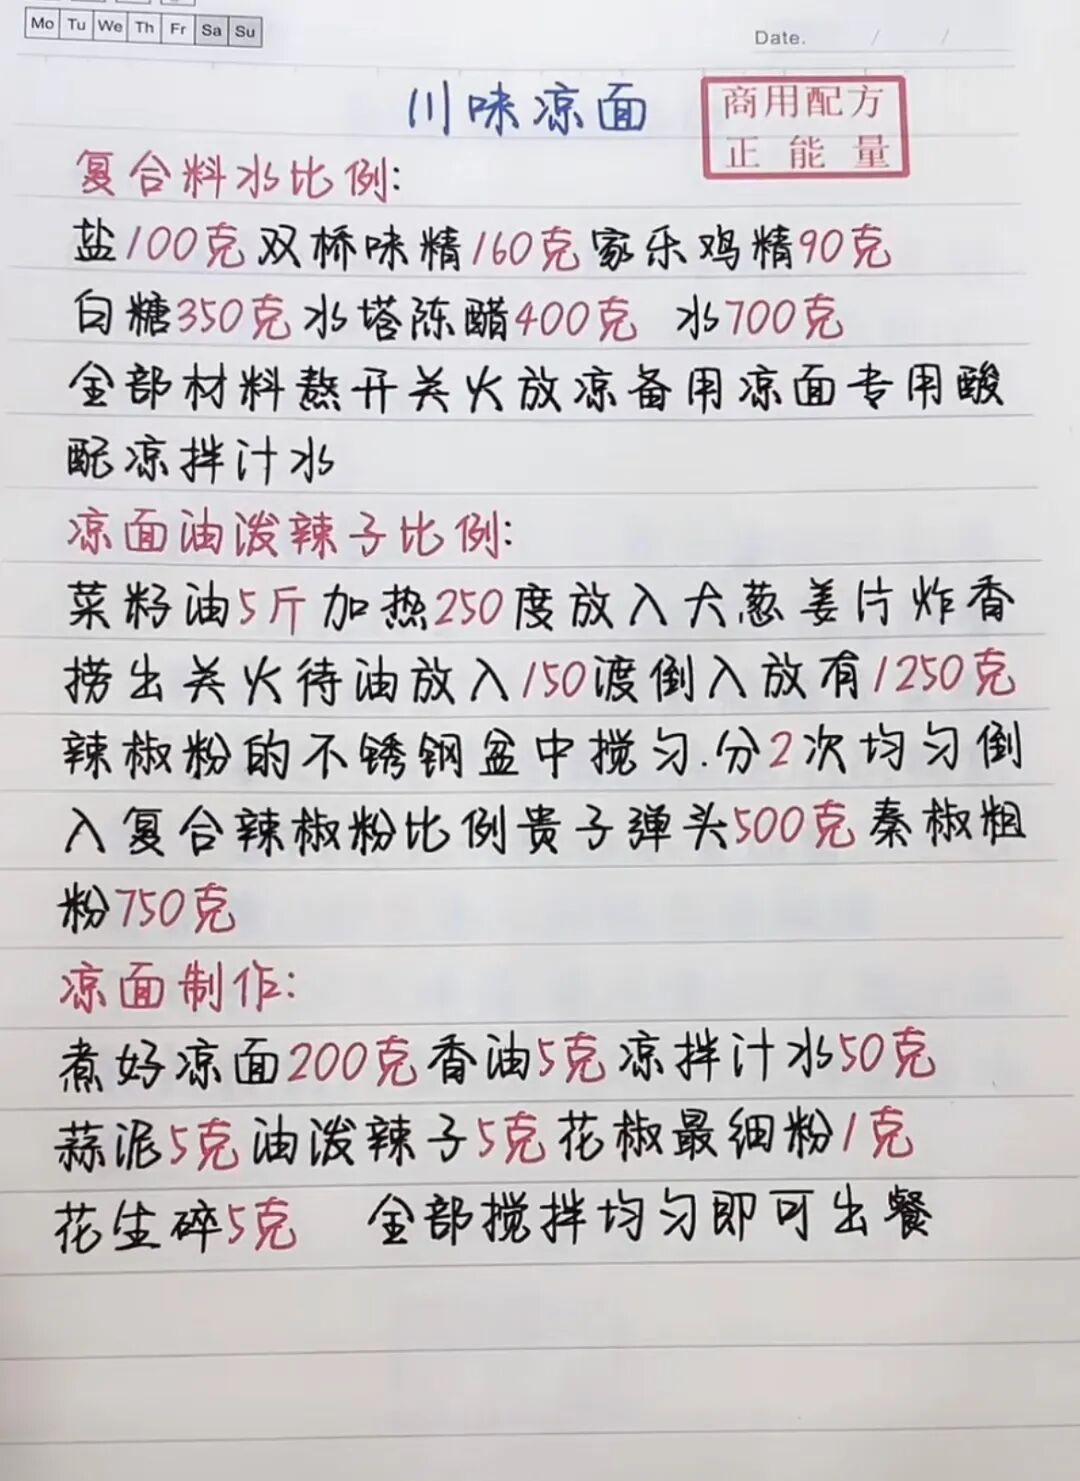 Mo Tu We Th Fr Sa Su
Date. / /
川味凉面
商用配方
正能量
复合料水比例:
盐100克双桥味精160克家乐鸡精90克
白糖350克水塔陈醋400克 水700克
全部材料熬开关火放凉备用凉面专用酸
配凉拌汁水
凉面油泼辣子比例:
菜籽油5斤加热250度放入大葱姜片炸香
捞出关火待油放入150渡倒入放有1250克
辣椒粉的不锈钢盆中搅匀.分2次均匀倒
入复合辣椒粉比例贵子弹头500克秦椒粗
粉750克
凉面制作:
煮好凉面200克香油5克凉拌汁水50克
蒜泥5克油泼辣子5克花椒最细粉1克
花生碎5克 全部搅拌均匀即可出餐